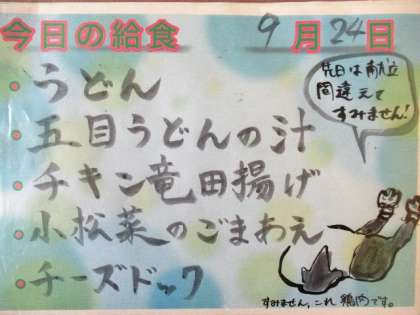 今日の給食 9月24日
・うどん
・五目うどんの汁
・チキン竜田揚げ
・小松菜のごまあえ
・チーズドック
先日は献立
間違えて
すみません!
すみません、これ鶏肉です。